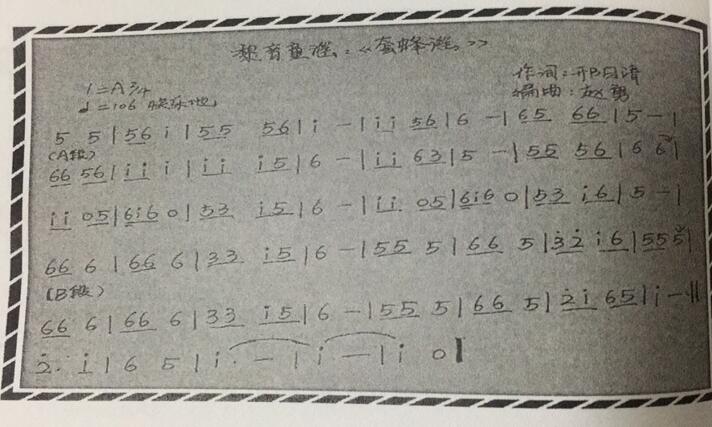 1=A 2/4
♩=106
作词:邢日清
编曲:赵勇
5 5 | 56 i | 55 56 | i - | ii 56 | 6 - | 65 66 | 5 - |
(A段)
66 56 | ii i | ii i5 | 6 - | ii 63 | 5 - | 55 56 | 6 6 |
ii 05 | 6i6 0 | 53 i5 | 6 - | ii 05 | 6i6 0 | 53 i6 | 5 - |
66 6 | 66 6 | 33 i5 | 6 - | 55 5 | 66 5 | 3̇2̇ i6 | 55 5 |
(B段)
66 6 | 66 6 | 33 i5 | 6 - | 55 5 | 66 5 | 2̇i 65 | i - ‖
2̇. i | 6 5 | i. - | i - | i 0 ‖